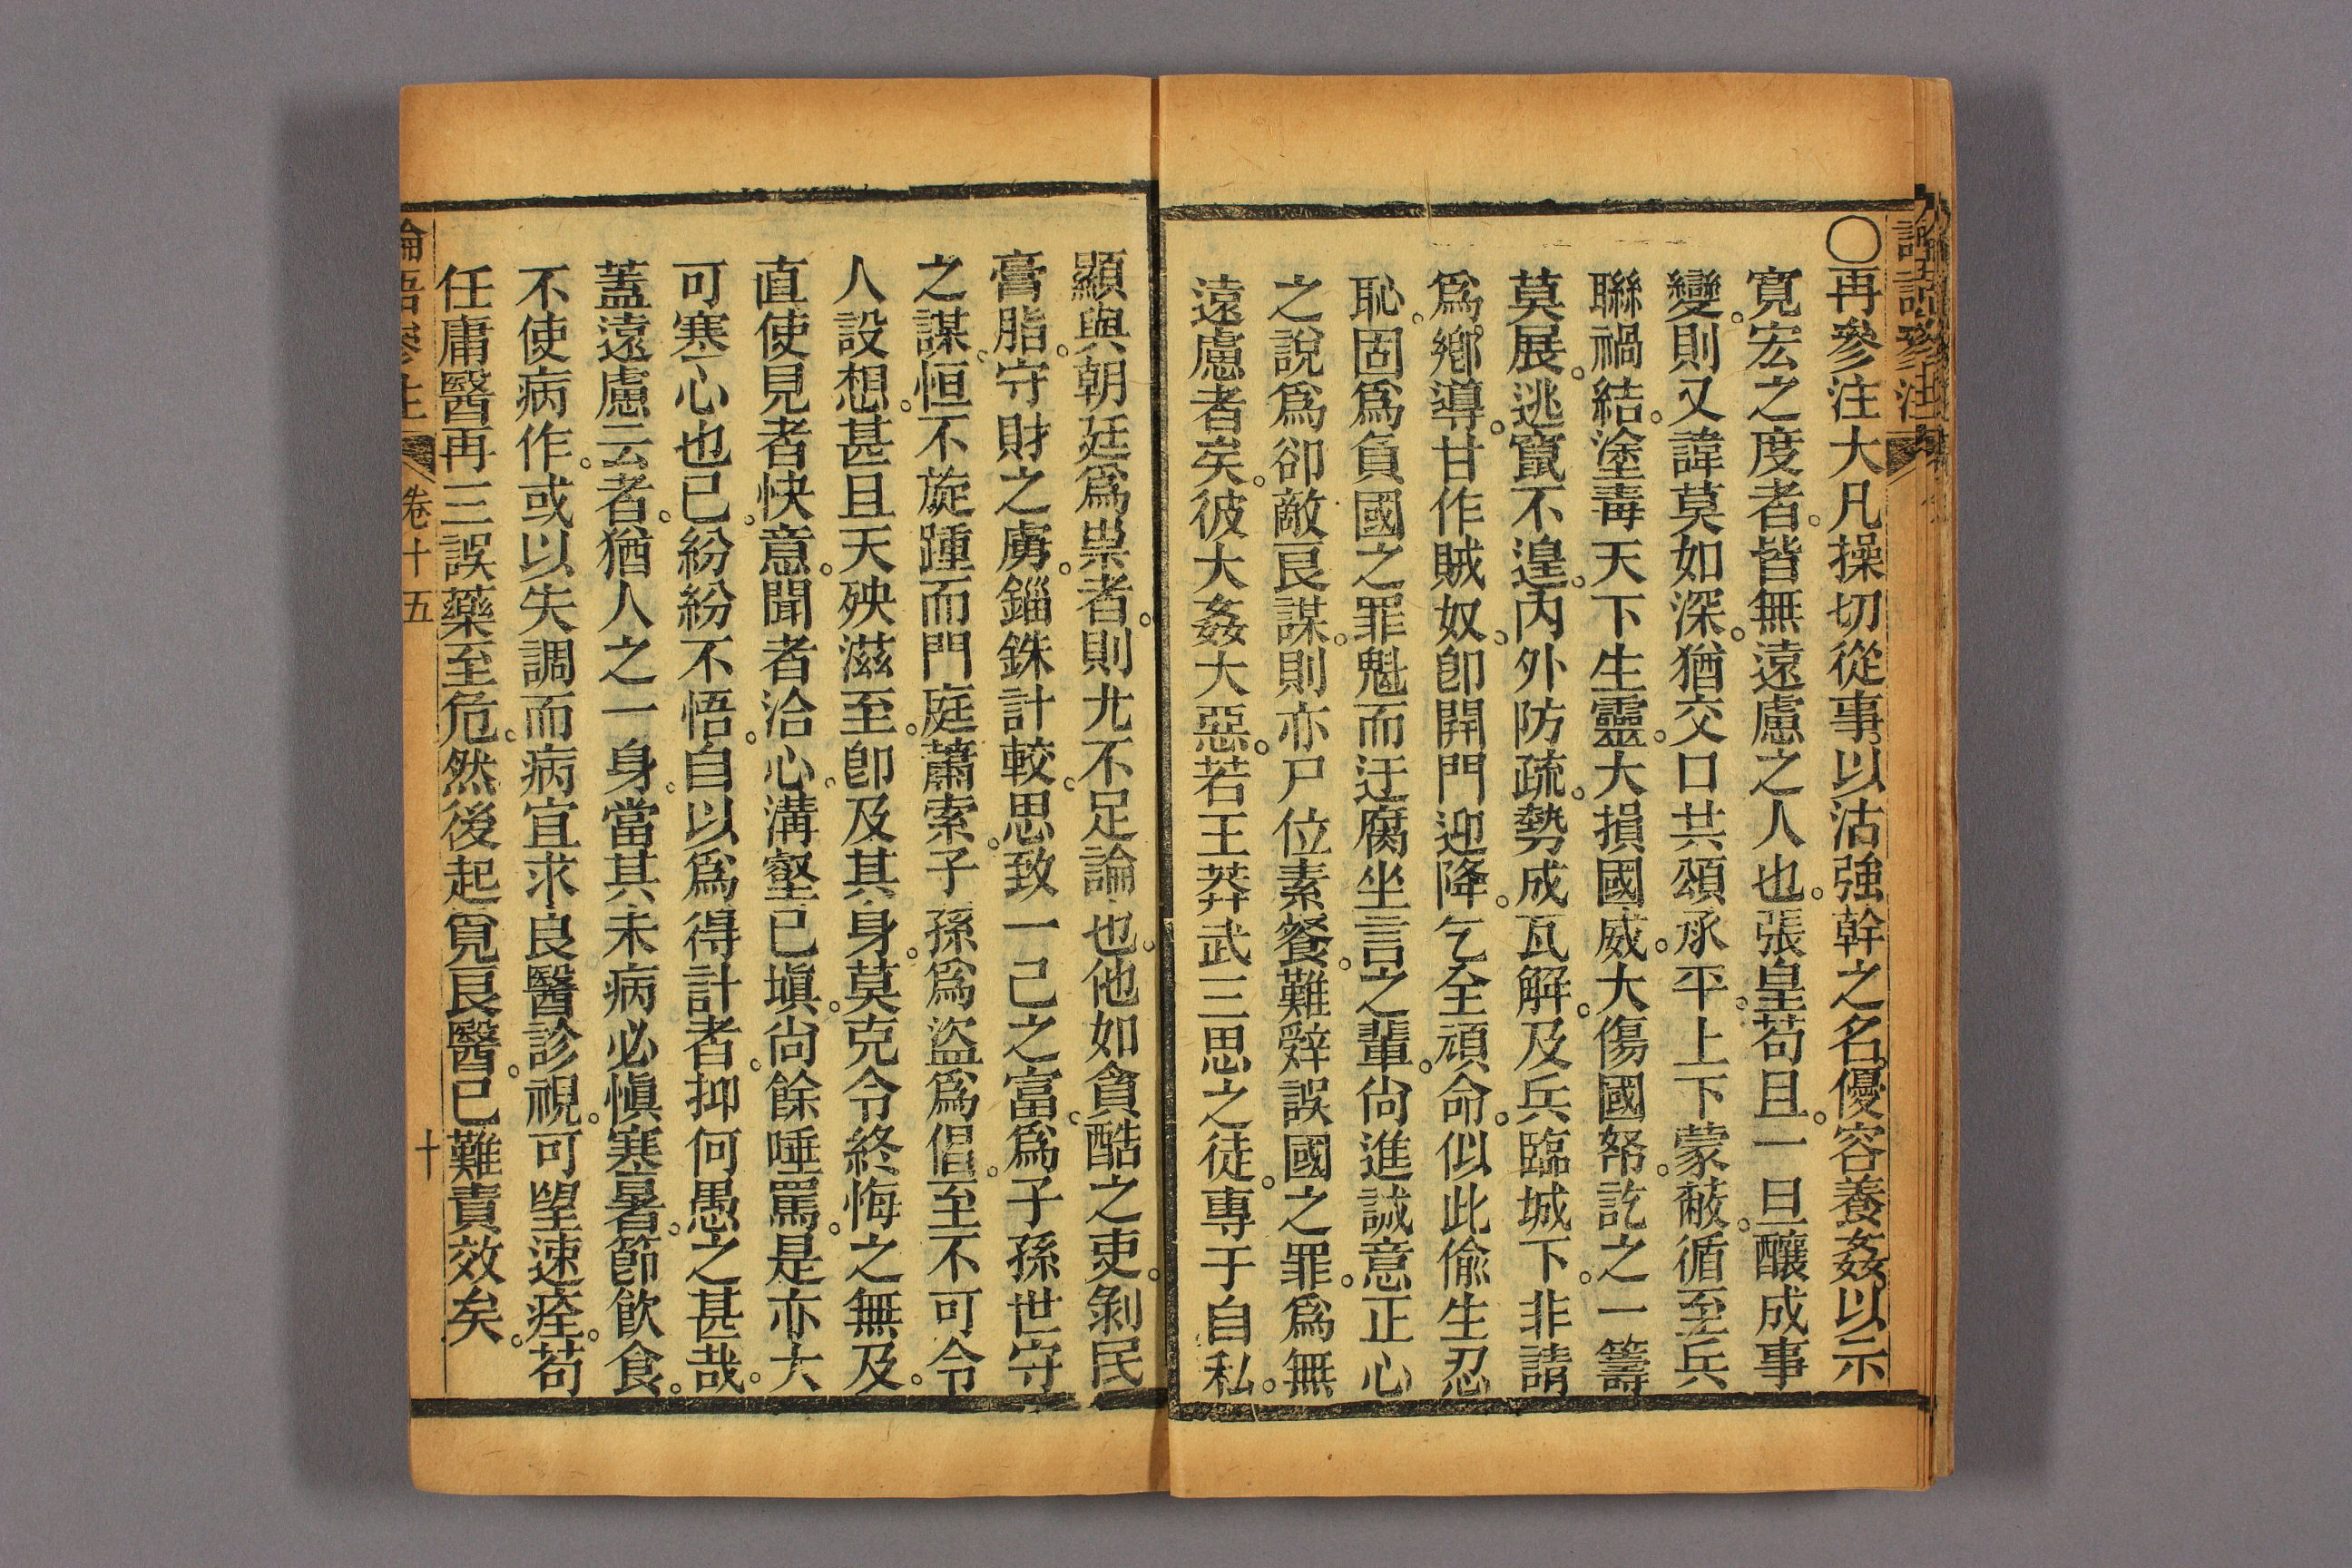 〇再參注大凡操切從事。以沽強幹之名。優容養姦。以示
寬宏之度者。皆無遠慮之人也。張皇苟且。一旦釀成事
變。則又諱莫如深。猶交口共頌承平。上下蒙蔽。循至兵
聯禍結。塗毒天下生靈。大損國威。大傷國帑。訖之一籌
莫展。逃竄不遑。內外防疏。勢成瓦解。及兵臨城下。非請
爲鄉導。甘作賊奴。卽開門迎降。乞全頑命。似此偷生忍
恥。固爲負國之罪魁而迂腐坐言之輩。尙進誠意正心
之說爲卻敵良謀。則亦尸位素餐。難辭誤國之罪。爲無
遠慮者矣。彼大姦大惡。若王莽武三思之徒。專于自私。
顯與朝廷爲祟者。則尤不足論也。他如貪酷之吏。剝民
膏脂。守財之虜。錙銖計較。思致一己之富。爲子孫世守
之謀。恒不旋踵而門庭蕭索。子孫爲盜爲倡。至不可令
人設想。甚且天殃滋至。卽及其身。莫克令終悔之無及。
直使見者快意。聞者洽心。溝壑已塡。尙餘唾罵。是亦大
可寒心也已。紛紛不悟。自以爲得計者。抑何愚之甚哉。
蓋遠慮云者。猶人之一身。當其未病必愼寒暑。節飮食。
不使病作。或以失調而病宜求良醫診視。可望速痊。苟
任庸醫再三誤藥至危。然後起覓良醫。已難責效矣。
論語參注 卷十五 十